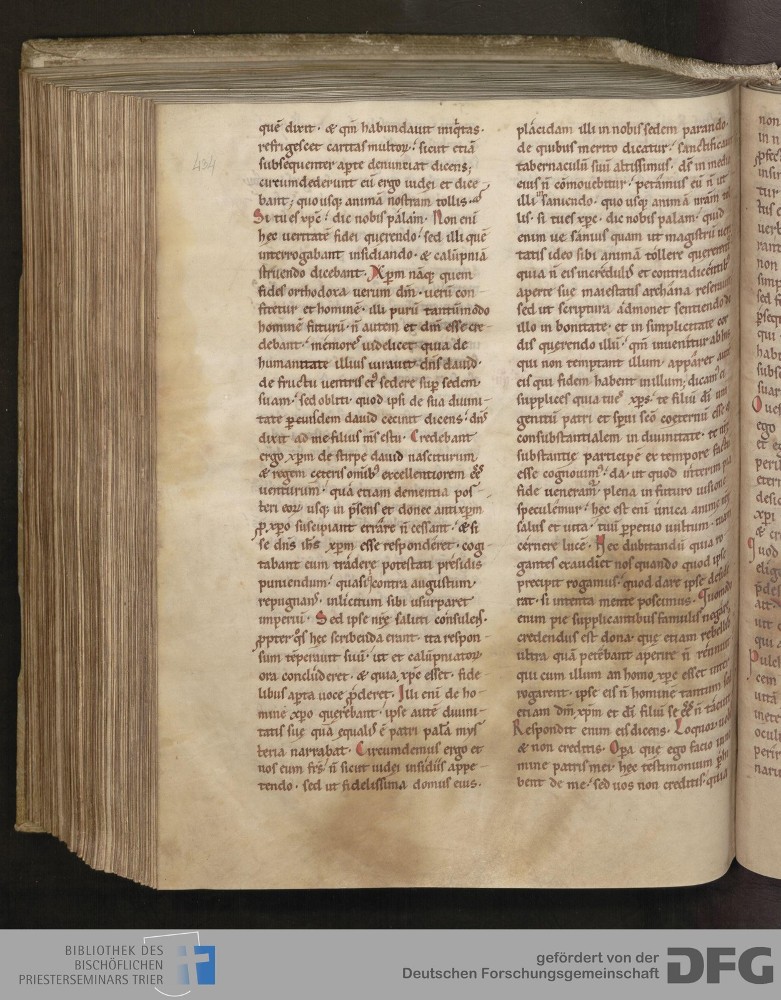 434
quē dixit · & qm̄ habundauit iniq̇tas ·
refrigescet caritas multoꝝ · sicut etiā
subsequenter aꝑte denunciat dicens;
circumdederunt eū ergo iudei et dice
bant; quousq; animā nostram tollis ·
Si tu es xp̄c · dic nobis palam · Non eni
hec ueritatē fidei querendo · sed illi quē
interrogabant insidiando · & calūpniā
struendo dicebant · Xp̄m nāq; quem
fides orthodoxa uerum dm̄ · uerū con
fitetur et hominē · illi purū tantūmodo
hominē futurū · n̄ autem et dm̄ esse cre
debant · memores uidelicet quia de
humanitate illius iurauit dn̄s dauid ·
de fructu uentris ei᷒ sedere sup̄ sedem
suam · sed obliti quod ipsi de sua diuini
tate ꝑ eundem dauid cecinit dicens · dn̄s
dixit ad me filius m̄s es tu · Credebant
ergo xp̄m de stirpe dauid nasciturum
& regem ceteris omīb᷒ excellentiorem eē̄
uenturum · qua etiam dementia pos
teri eoꝝ usq; in p̄sens et donec antixp̄m
ꝓ xp̄o suscipiant errare n̄ cessant · & si
se dn̄s ih̄s xp̄m esse responderet · cogi
tabant eum tradere potestati presidis
puniendum · quasi contra augustum
repugnans · inlicitum sibi usurparet
imperiū · Sed ipse nr̄e saluti consulens ·
ꝓpter q̊s hec scribenda erant · ita respon
sum temperauit suū · ut et calūpniatoꝝ
ora concluderet · & quia xp̄c esset · fide
libus aꝑta uoce ꝓderet · Illi eni de ho
mine xp̄o querebant · ipse autē diuini
tatis sue quā equalis ē patri palā mys
teria narrabat · Circumdemus ergo et
nos eum fr̄s · n̄ sicut iudei insidiis appe
tendo · sed ut fidelissima domus eius ·
placidam illi in nobis sedem parando ·
de quibus merito dicatur · sanctificauit
tabernaculū suū altissimus · ds̄ in medio
eius n̄ cōmouebitur · petamus eū n̄ ut
illi insaniendo · quousq; animā nram tol
lis · si tu es xp̄c · dic nobis palam · quid
enim ue sanius quam ut magistrū ueri
tatis ideo sibi animā tollere querentur
quia n̄ eis incredulis et contradicentib᷒
aperte sue maiestatis archana reserauit
sed ut scriptura admonet sentiendo de
illo in bonitate · et in simplicitate cor
dis querendo illū · qm̄ inuenitur ab his
qui non temptant illum · apparet autē
eis qui fidem habent in illum; dicam᷒ ei
supplices quia tu es xp̄s · te filiū dī uni
genitū patri et spūi sc̄o coeternū esse &
consubstantialem in diuinitate · te nr̄e
substantie participē ex tempore factū
esse cognouim᷒ · da · ut quod interim pia
fide ueneram᷒ · plena in futuro uisione
speculemur · hec est eni unica anime nr̄e
salus et uita · tuū perpetuo uultum · tuam
cernere lucē · Nec dubitandū quia ro
gantes exaudiet nos quando quod ipse
precipit rogamus · quod dare ipse deside
rat · si intenta mente poscimus · Quomodo
enim pie supplicantibus famulis neglegens
credendus est dona · que etiam rebellib᷒
ultra quā petebant aperire n̄ rennuit
qui cum illum an homo xp̄c esset inter
rogarent · ipse eis n̄ hominē tantum sed
etiam dm̄ xp̄m et dī filiū se eē̄ n̄ tacuit
Respondit enim eis dicens · Loquor uobis
& non creditis · Opa que ego facio in no
mine patris mei · hec testimonium phi
bent de me · sed uos non creditis · quia
BIBLIOTHEK DES
BISCHÖFLICHEN
PRIESTERSEMINARS TRIER
gefördert von der
Deutschen Forschungsgemeinschaft
DFG